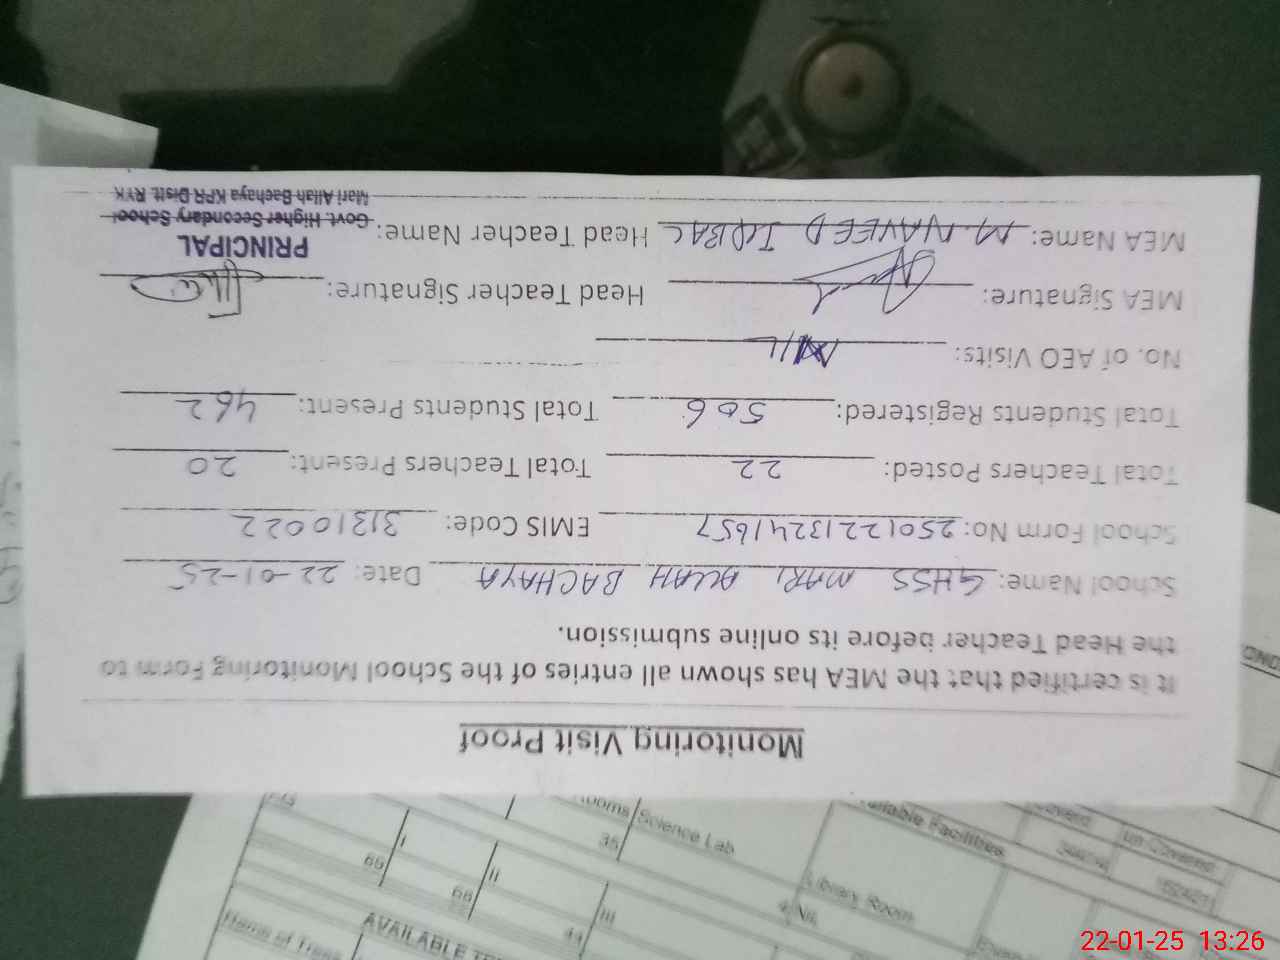 Monitoring Visit Proof
It is certified that the MEA has shown all entries of the School Monitoring Form to
the Head Teacher before its online submission.
School Name: GHSS MARI ALLAH BACHAYA Date: 22-01-25
School Form No: 25012213241657 EMIS Code: 31310022
Total Teachers Posted: 22 Total Teachers Present: 20
Total Students Registered: 506 Total Students Present: 462
No. of AEO Visits: NIL
MEA Signature: Head Teacher Signature:
MEA Name: M. NAVEED IQBAL Head Teacher Name:
PRINCIPAL
Govt. Higher Secondary School
Mari Allah Bachaya KPR Distt. RYK
Science Lab
35
Library Room
Nil
Un Covered
I
II
III
66
66
44
22-01-25 13:26